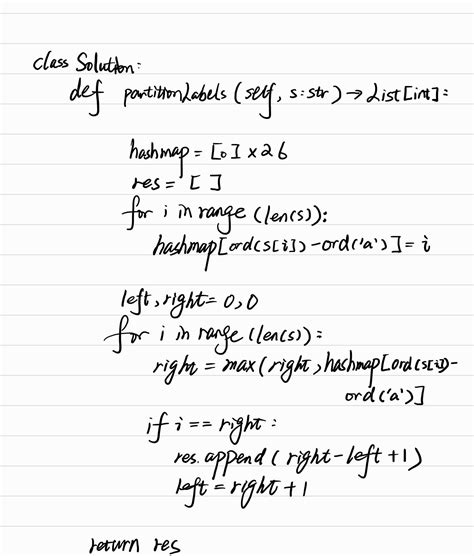 class Solution:
def partitionLabels(self, s:str)→List[int]:
hashmap = [0]×26
res = [ ]
for i in range(len(s)):
hashmap[ord(s[i])-ord('a')]=i
left,right=0,0
for i in range(len(s)):
right = max(right,hashmap[ord(s[i])-
ord('a')]
if i == right:
res.append(right-left+1)
left = right+1
return res